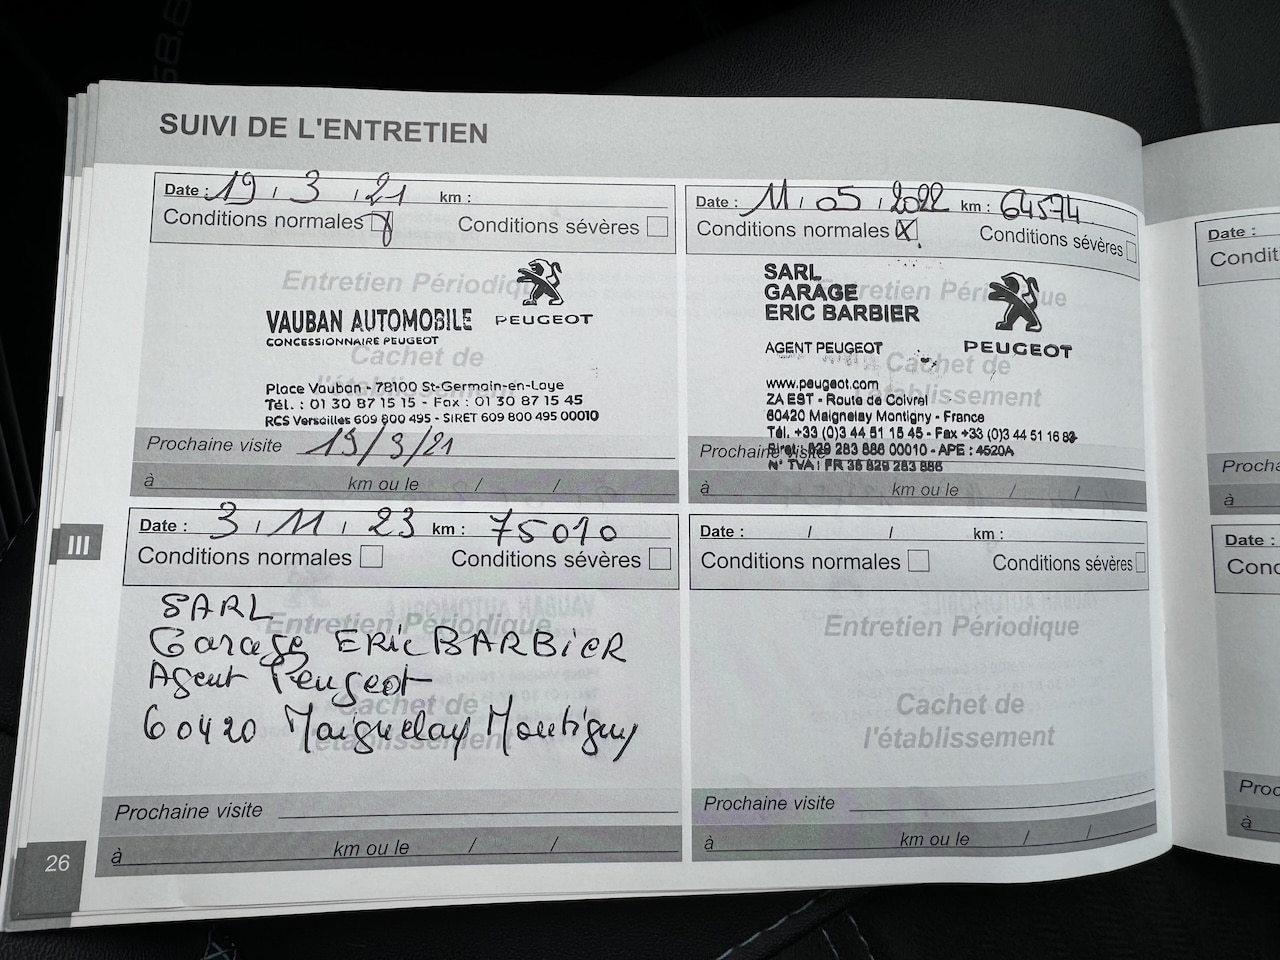 SUIVI DE L'ENTRETIEN
Date : 19 / 3 / 21 km :
Conditions normales Conditions sévères
Entretien Périodique
VAUBAN AUTOMOBILE
CONCESSIONNAIRE PEUGEOT
PEUGEOT
Cachet de
l'établissement
Place Vauban - 78100 St-Germain-en-Laye
Tél. : 01 30 87 15 15 - Fax : 01 30 87 15 45
RCS Versailles 609 800 495 - SIRET 609 800 495 00010
Prochaine visite 19/3/21
à km ou le / /
Date : 11 / 05 / 2022 km : 64574
Conditions normales X Conditions sévères
Entretien Périodique
SARL
GARAGE
ERIC BARBIER
AGENT PEUGEOT
PEUGEOT
Cachet de
l'établissement
www.peugeot.com
ZA EST - Route de Coivrel
60420 Maignelay Montigny - France
Tél. +33 (0)3 44 51 15 45 - Fax +33 (0)3 44 51 16 83
Prochaine visite
Siret : 829 283 886 00010 - APE : 4520A
N° TVA : FR 36 829 283 886
à km ou le / /
Date : 3 / 11 / 23 km : 75010
Conditions normales Conditions sévères
Entretien Périodique
Cachet de
l'établissement
SARL
Garage ERic BARBiER
Agent Peugeot
60420 Maignelay Montigny
Prochaine visite
à km ou le / /
Date : / / km :
Conditions normales Conditions sévères
Entretien Périodique
Cachet de
l'établissement
Prochaine visite
à km ou le / /
III
26
Date :
à
Date :
à